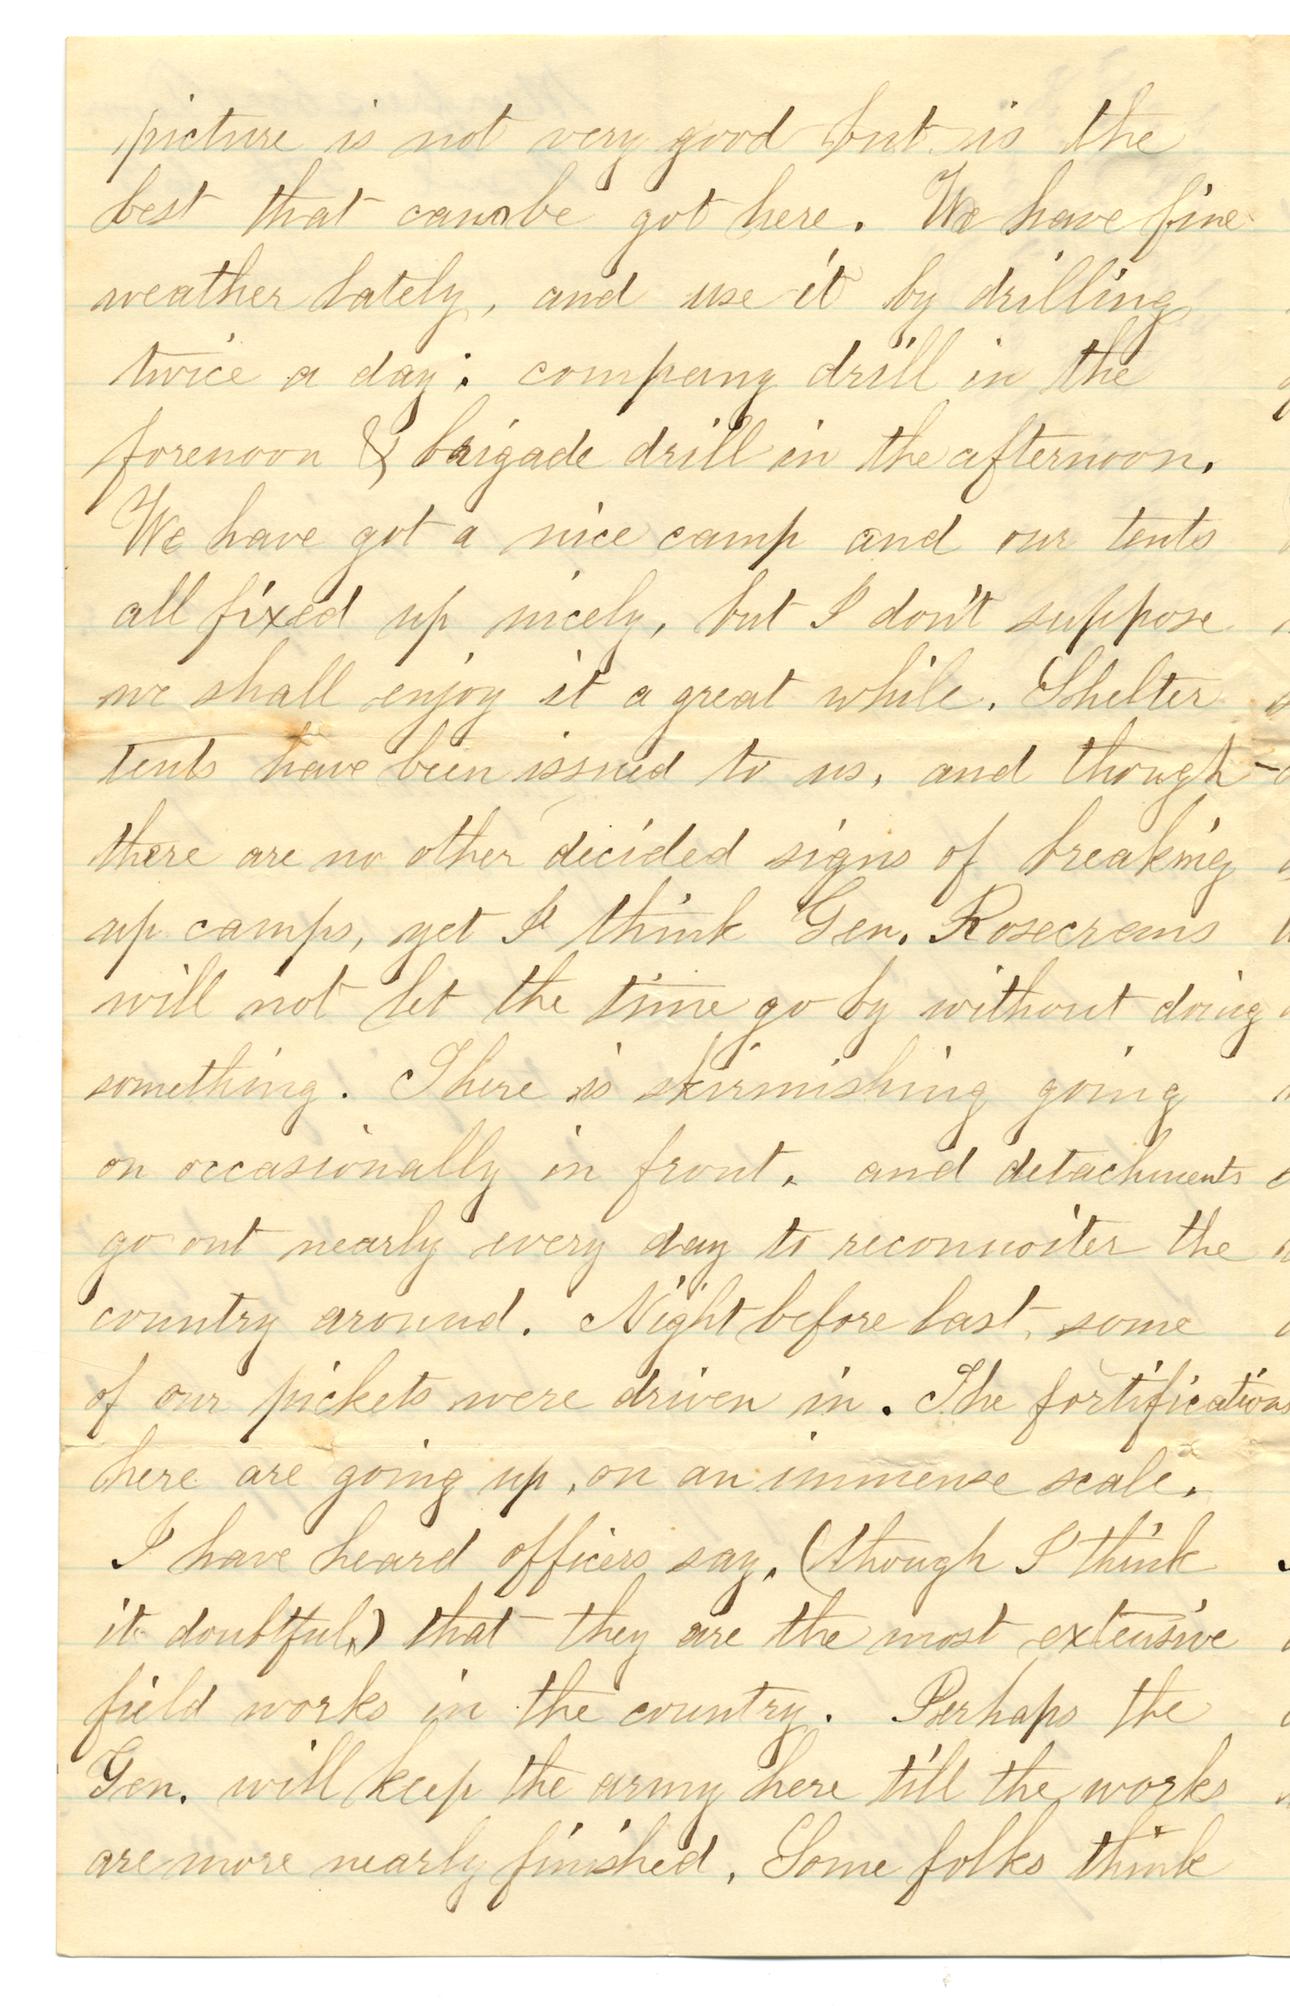 picture is not very good but is the
best that can be got here. We have fine
weather lately, and use it by drilling
twice a day; company drill in the
forenoon & brigade drill in the afternoon.
We have got a nice camp and our tents
all fixed up nicely, but I don't suppose
we shall enjoy it a great while. Shelter
tents have been issued to us, and though
there are no other decided signs of breaking
up camps, yet I think Gen. Rosecrans
will not let the time go by without doing
something. There is skirmishing going
on occasionally in front, and detachments
go out nearly every day to reconnoiter the
country around. Night before last, some
of our pickets were driven in. The fortifications
here are going up, on an immense scale.
I have heard officers say, (though I think
it doubtful,) that they are the most extensive
field works in the country. Perhaps the
Gen. will keep the army here till the works
are more nearly finished. Some folks think